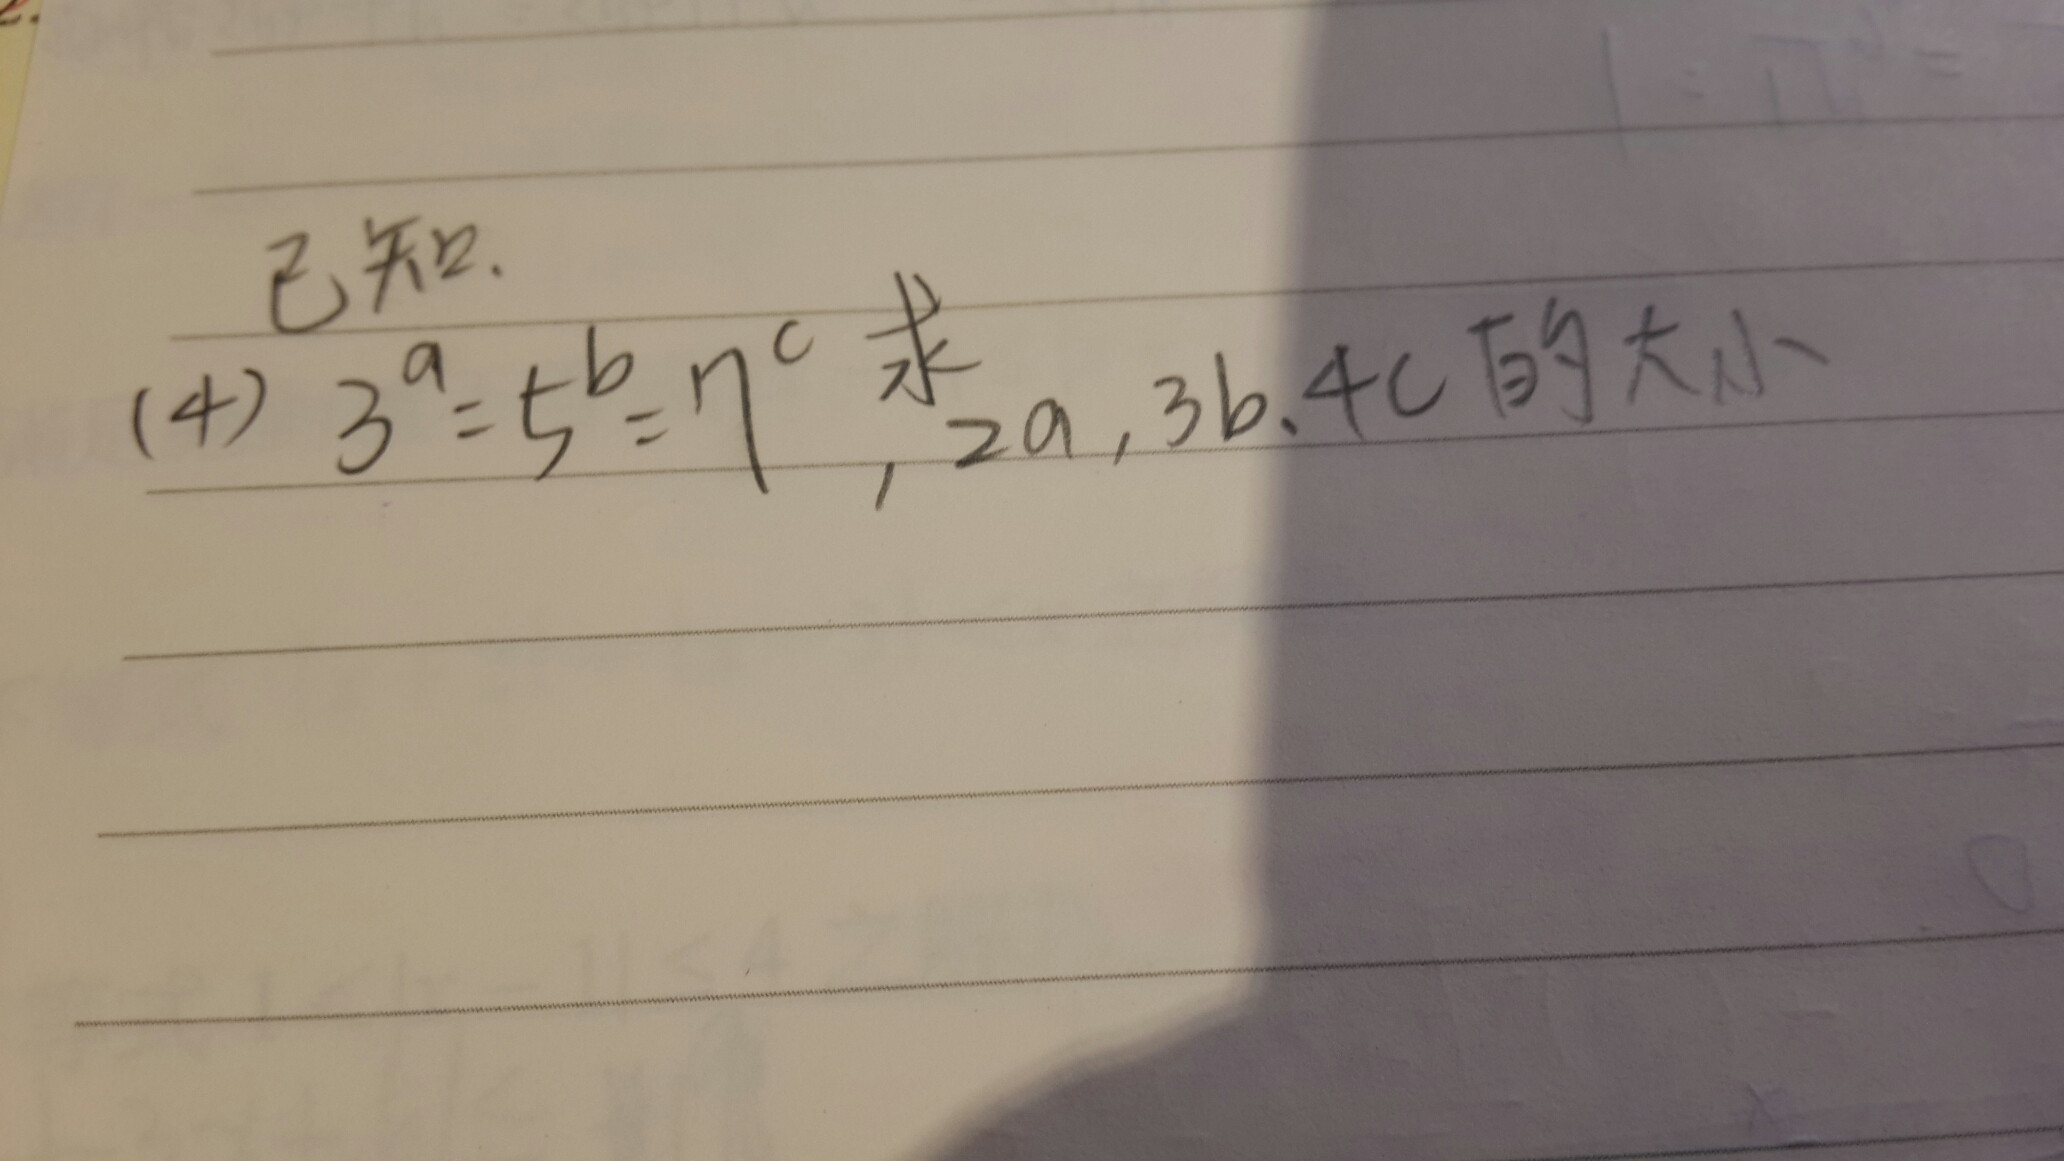 已知.
(4) 3^a=5^b=7^c 求, 2a, 3b、4c 的大小